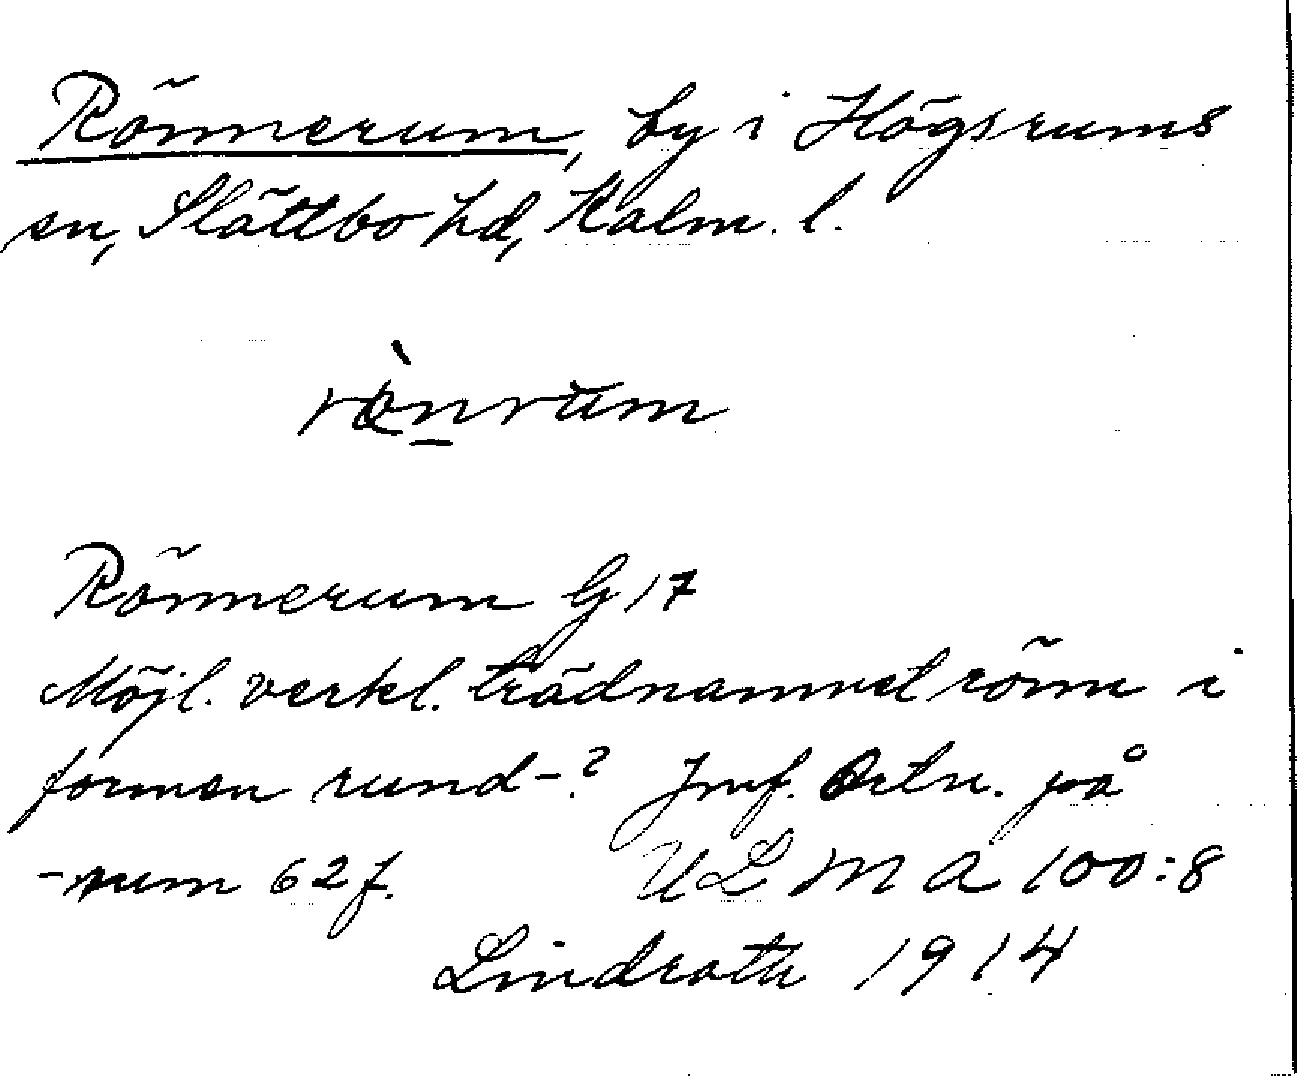 Rönnerum, by i Högsrums
sn, Slättbo hd, Kalm. l.
rø̀n̲rum
Rönnerum G 17
Möjl. verkl. trädnamnet rönn i
formen rund-? Jmf. Ortn. på
-rum 62 f. ULMA 100:8
Lindroth 1914